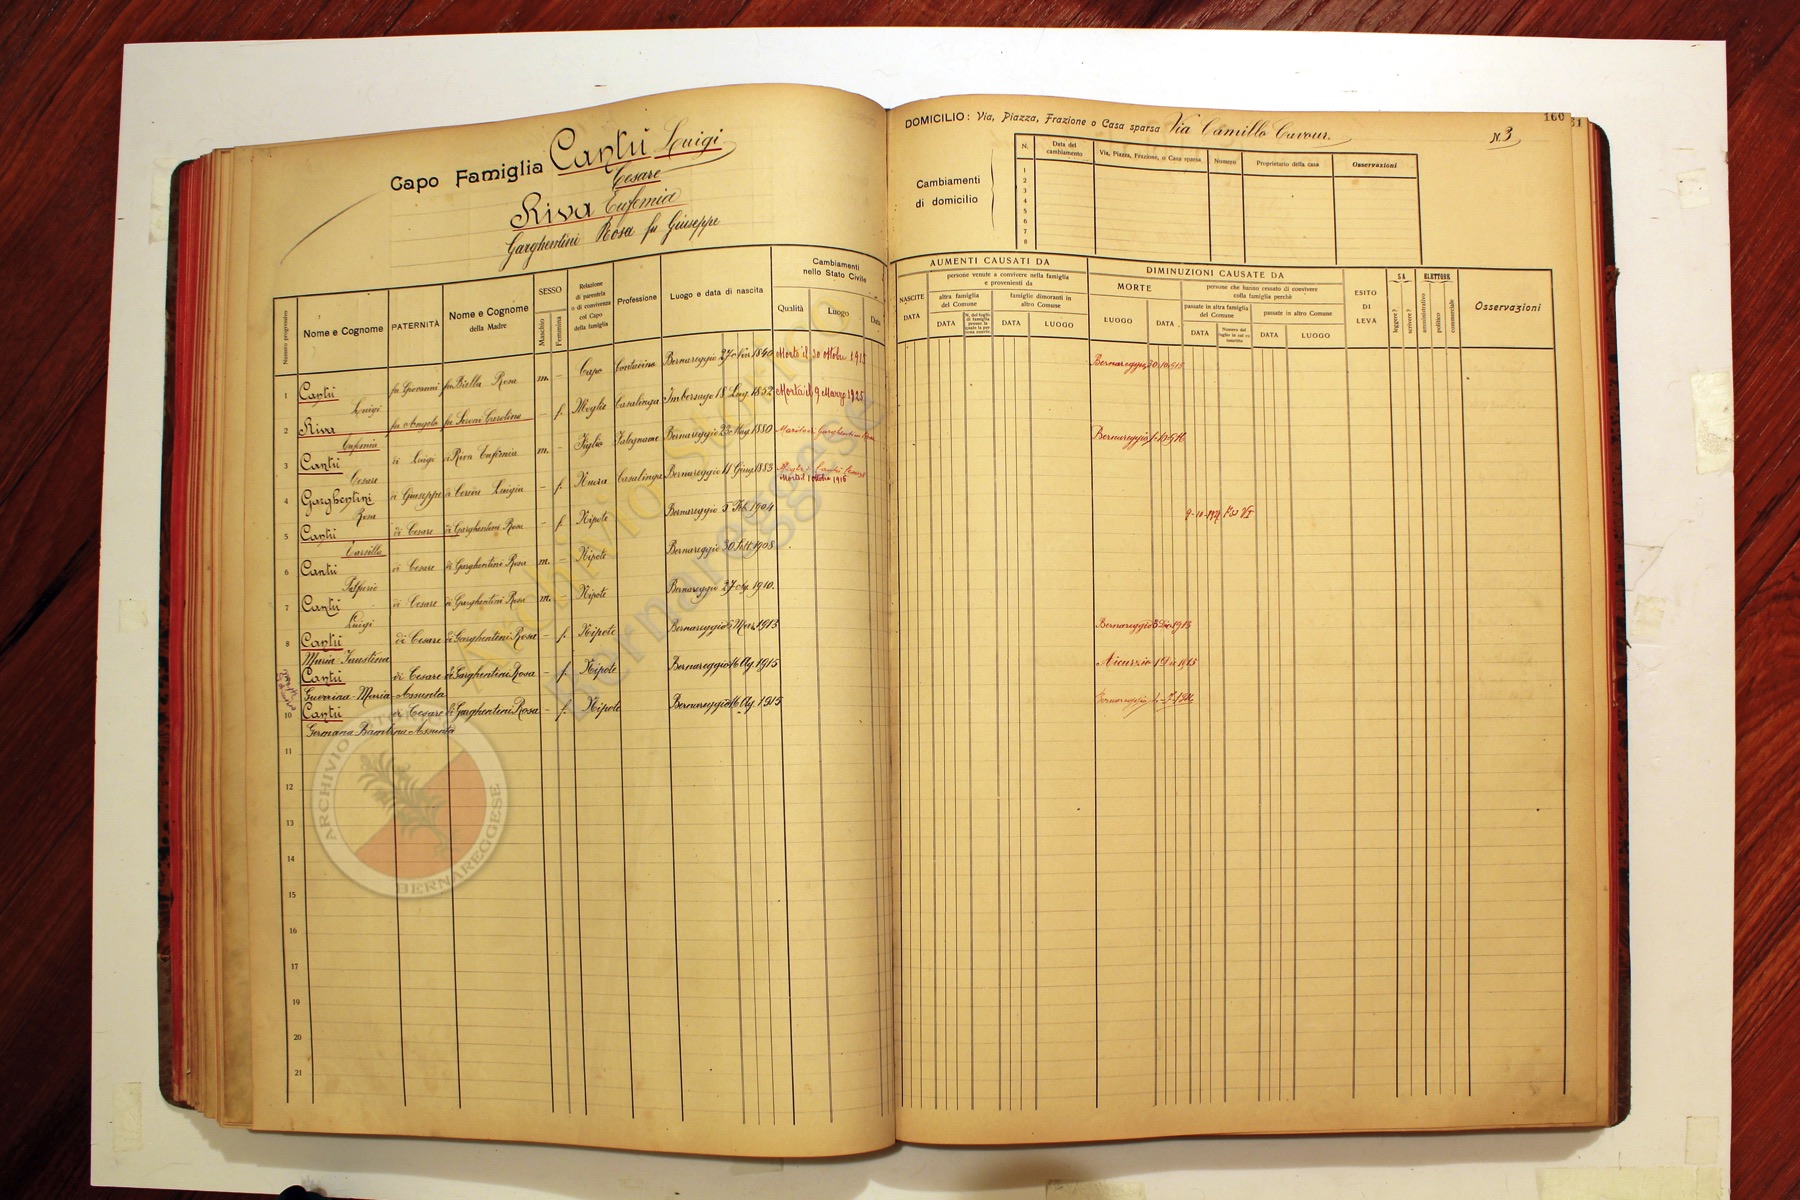 Capo Famiglia Cantù Luigi
Cesare
Riva Eufemia
Garghentini Rosa fu Giuseppe
DOMICILIO: Via, Piazza, Frazione o Casa sparsa Via Camillo Cavour.
N. 3
160
Cambiamenti di domicilio
N. Data del cambiamento Via, Piazza, Frazione, o Casa sparsa Numero Proprietario della casa Osservazioni
1
2
3
4
5
6
7
8
Numero progressivo
Nome e Cognome
PATERNITÀ
Nome e Cognome della Madre
SESSO
Maschio
Femmina
Relazione di parentela o di convivenza col Capo della famiglia
Professione
Luogo e data di nascita
Cambiamenti nello Stato Civile
Qualità Luogo Data
AUMENTI CAUSATI DA
NASCITE
DATA
persone venute a convivere nella famiglia e provenienti da
altra famiglia del Comune
DATA
famiglie dimoranti in altro Comune
DATA LUOGO
DIMINUZIONI CAUSATE DA
MORTE
LUOGO DATA
persone che hanno cessato di convivere colla famiglia perchè
passate in altra famiglia del Comune
DATA
passate in altro Comune
DATA LUOGO
ESITO DI LEVA
SA
leggere?
scrivere?
ELETTORE
amministrativo
politico
commerciale
Osservazioni
1 Cantù Luigi fu Giovanni fu Biella Rosa m. - Capo Contadino Bernareggio Morto il 30 ottobre 1915 Bernareggio 30.10.915
2 Riva Eufemia fu Angelo fu Seroni Carolina - f. Moglie Casalinga Imbersago 18 Lug. 1852 Morta il 9 Marzo 1925
3 Cantù Cesare di Luigi di Riva Eufemia m. - Figlio Falegname Bernareggio 23 Mag. 1880 Marito di Garghentini Rosa Bernareggio
4 Garghentini Rosa di Giuseppe - f. Nuora Casalinga Bernareggio 11 Giug. 1883 Moglie di Cantù Cesare
Morta il 1 ottobre 1916
5 Cantù Carsilla di Cesare di Garghentini Rosa - f. Nipote Bernareggio 5 Feb. 1904
6 Cantù di Cesare di Garghentini Rosa m. - Nipote Bernareggio 30 Sett. 1908
7 Cantù Luigi di Cesare di Garghentini Rosa m. - Nipote Bernareggio 27 1910.
8 Cantù Maria Faustina di Cesare di Garghentini Rosa - f. Nipote Bernareggio 5 Mar. 1913 Bernareggio 1913
Cantù Guerrina Maria Assunta di Cesare di Garghentini Rosa - f. Nipote Bernareggio 16 Ag. 1915 Aicurzio 1 1915
10 Cantù Germana Bambina Assunta di Cesare di Garghentini Rosa - f. Nipote Bernareggio 16 Ag. 1915
11
12
13
14
15
16
17
18
19
20
21
Archivio Storico
Bernareggese
ARCHIVIO STORICO
BERNAREGGESE